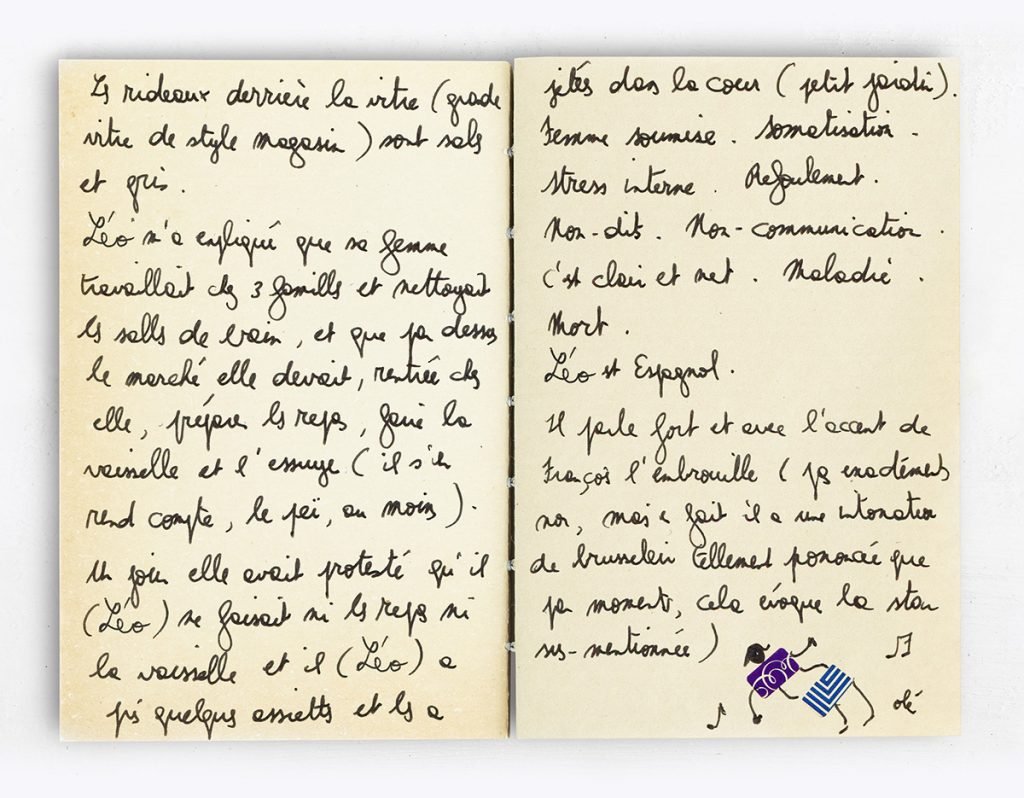 Les rideaux derrière la vitre (grande
vitre de style magasin) sont sales
et gris.
Léo m'a expliqué que sa femme
travaillait chez 3 familles et nettoyait
les salles de bain, et que par dessus
le marché elle devait, rentrée chez
elle, préparer les repas, faire la
vaisselle et l'essuyer (il s'en
rend compte, le peï, au moins).
Un jour elle avait protesté qu'il
(Léo) ne faisait ni les repas ni
la vaisselle et il (Léo) a
pris quelques assiettes et les a
jetés dans la cour (petit jardin).
Femme soumise. Somatisation.
Stress interne. Refoulement.
Non-dits. Non-communication.
C'est clair et net. Maladie.
Mort.
Léo est Espagnol.
Il parle fort et avec l'accent de
François l'embrouille (pas exactement
non, mais en fait il a une intonation
de brusseleir tellement prononcée que
par moments, cela évoque la star
sus-mentionnée)
olé